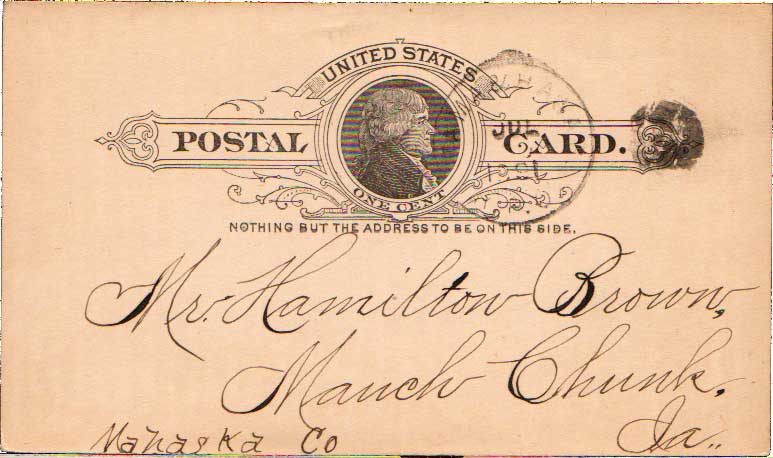 UNITED STATES
POSTAL CARD.
ONE CENT
NOTHING BUT THE ADDRESS TO BE ON THIS SIDE.
JUL
Mr. Hamilton Brown,
Mauch Chunk.
Ia..
Mahaska Co